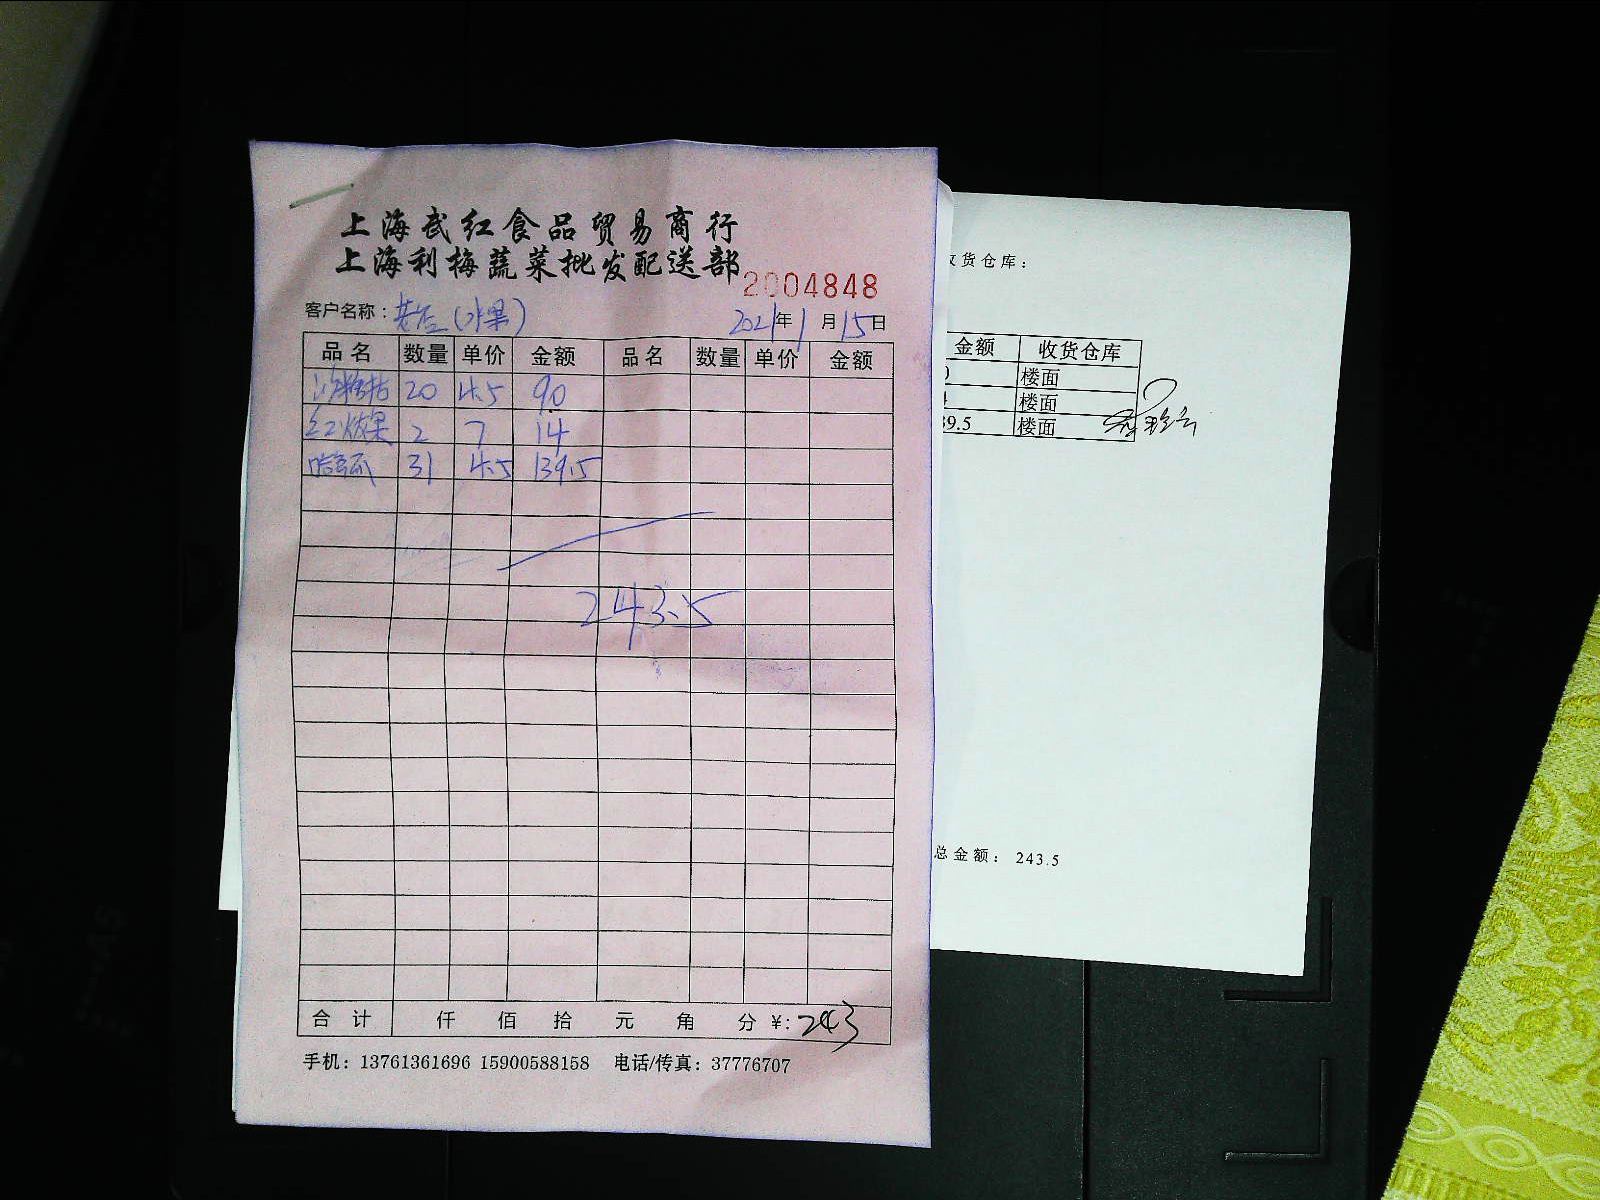 上海武红食品贸易商行
上海利梅蔬菜批发配送部
2004848
客户名称: (水果) 2021年1月15日
品名 数量 单价 金额 品名 数量 单价 金额
沙糖桔 20 4.5 90
红火龙果 2 7 14
哈密瓜 31 4.5 139.5
243.5
合计 仟 佰 拾 元 角 分 ¥:243
手机: 13761361696 15900588158 电话/传真: 37776707
收货仓库:
金额 收货仓库
楼面
楼面
39.5 楼面
总金额: 243.5